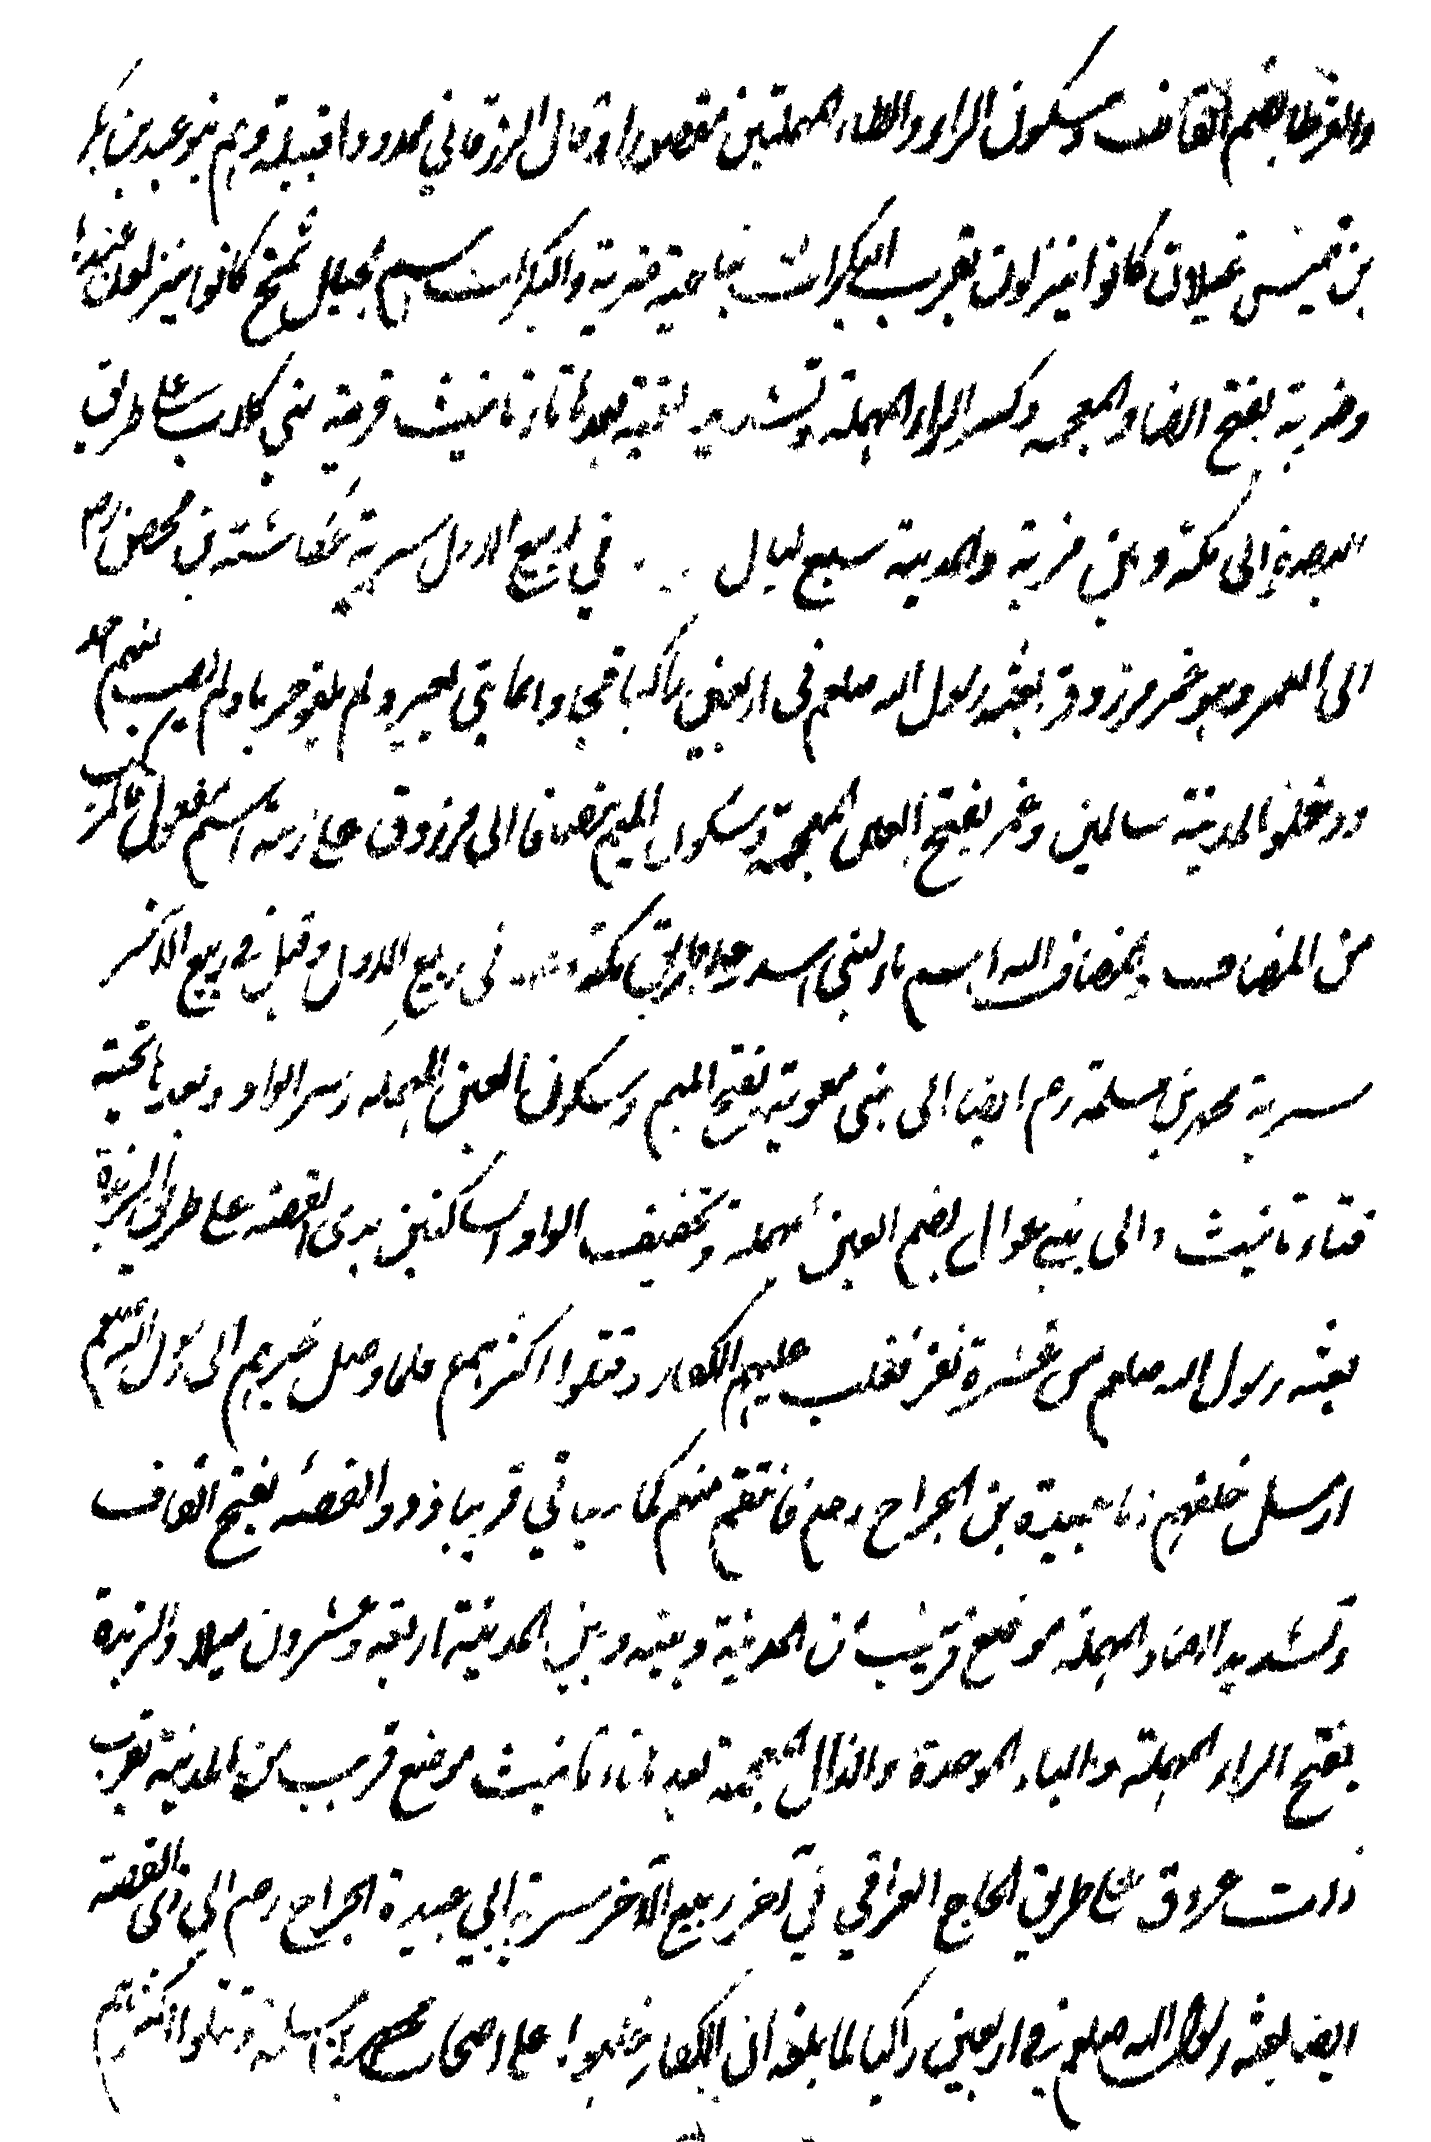 والقرطا بضم القاف وسكون الراء والطاء المهملتين مقصورا وقال الزرقاني ممدودا قبيلة وهم بنو عبد بن بكر
بن قيس غيلان كانوا ينزلون بقرب البكرات بناحية ضرية والبكرات اسم بجبال شمخ كانوا ينزلون عندها
وضرية بفتح الضاد المعجمه وكسر الراء المهملة وتشديد تحتية بعدها تاء تانيث قرية بني كلاب على طريق
البصرة الى مكة وبين ضرية والمدينة سبع ليال في ربيع الاول سرية عكاشة بن محصن رضي
الى الغمر وهو غمر مرزوق بعثه رسول الله صلعم في اربعين راكبا فجاوا بمايتي بعير ولم يلقو حربا ولم يصب منهم احد
ودخلوا المدينة سالمين وغمر بفتح الغين المعجمة وسكون الميم مضافا الى مرزوق على زنة اسم مفعول
من المضاف والمضاف اليه اسم ماء لبني اسد على طريق مكة في ربيع الاول وقيل في ربيع الآخر
سرية محمد بن مسلمة رضي ايضا الى بني معوية بفتح الميم وسكون العين المهمله وكسر الواو وبعد يا تحتية
فتاء تانيث والى بني عوال بضم العين مهملة وتخفيف الواو الساكنين بذى القصة على طريق الربذة
بعثه رسول الله صلعم في عشرة نفر فغلب عليهم الكفار وقتلوا اكثرهم فلما وصل خبرهم الى رسول الله صلعم
ارسل خلفهم ابا عبيدة بن الجراح رضي فانتقم منهم كما سياتي قريبا وذو القصه بفتح القاف
وتشديد الصاد المهملة موضع قريب من المدينة وبينه وبين المدينة اربعة وعشرون ميلا والربذة
بفتح الراء المهملة والباء الموحدة والذال المعجمه بعدها تاء تانيث موضع قريب من المدينة بقرب
ذات عروق على طريق الحاج العراقي في آخر ربيع الآخر سرية ابي عبيدة الجراح رضي الى ذى القصه
ايضا بعثه رسول الله صلعم في اربعين راكبا لما بلغه ان الكفار غلبوا على اصحاب محمد بن مسلمة وقتلوا اكثرهم